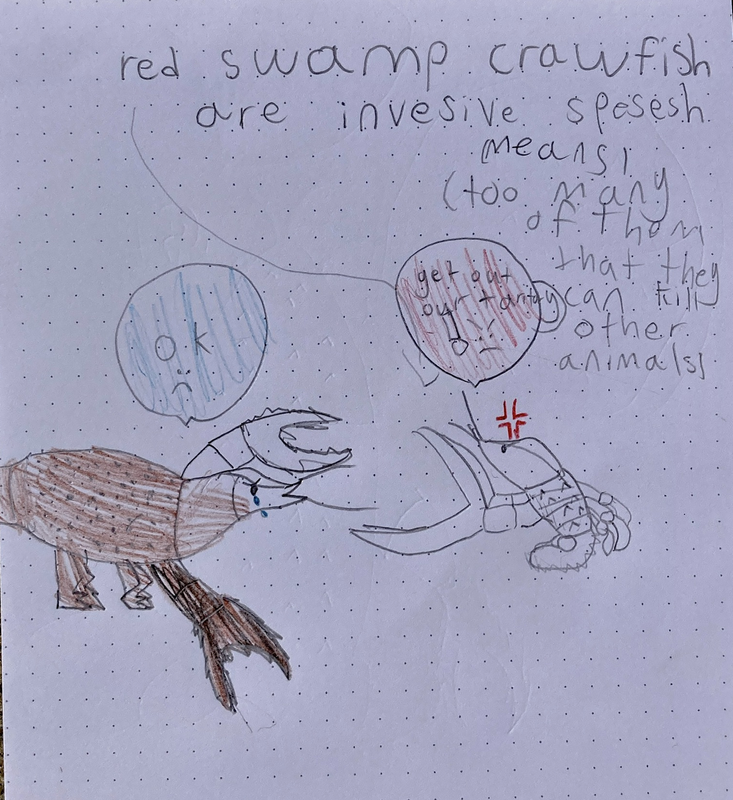 red swamp crawfish
are invesive spesesh
means)
(too many
of them
that they
can kill
other
animals)
get out
our
OK